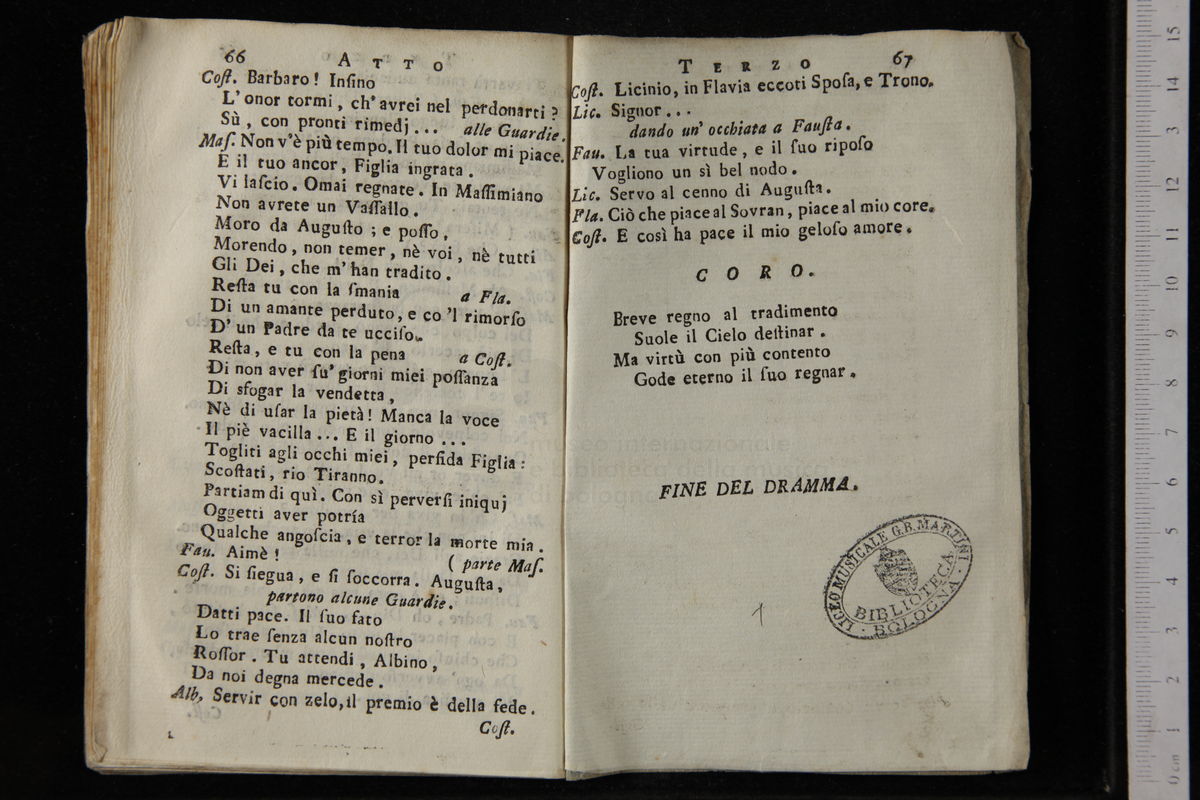 66
ATTO
Coſt. Barbaro! Inſino
L'onor tormi, ch'avrei nel perdonarti?
Sù, con pronti rimedj... alle Guardie.
Maſ. Non v'è più tempo. Il tuo dolor mi piace.
E il tuo ancor, Figlia ingrata.
Vi laſcio. Omai regnate. In Maſſimiano
Non avrete un Vaſſallo.
Moro da Auguſto; e poſſo,
Morendo, non temer, nè voi, nè tutti
Gli Dei, che m'han tradito.
Reſta tu con la ſmania a Fla.
Di un amante perduto, e co'l rimorſo
D'un Padre da te ucciſo.
Reſta, e tu con la pena a Coſt.
Di non aver ſu' giorni miei poſſanza
Di sfogar la vendetta,
Nè di uſar la pietà! Manca la voce
Il piè vacilla... E il giorno...
Togliti agli occhi miei, perfida Figlia:
Scoſtati, rio Tiranno.
Partiam di quì. Con sì perverſi iniquj
Oggetti aver potría
Qualche angoſcia, e terror la morte mia.
Fau. Aimè! (parte Maſ.
Coſt. Si ſiegua, e ſi ſoccorra. Auguſta,
partono alcune Guardie.
Datti pace. Il ſuo fato
Lo trae ſenza alcun noſtro
Roſſor. Tu attendi, Albino,
Da noi degna mercede.
Alb. Servir con zelo, il premio è della fede.
Coſt.
TERZO
67
Coſt. Licinio, in Flavia eccoti Spoſa, e Trono.
Lic. Signor...
dando un' occhiata a Fauſta.
Fau. La tua virtude, e il ſuo ripoſo
Vogliono un sì bel nodo.
Lic. Servo al cenno di Auguſta.
Fla. Ciò che piace al Sovran, piace al mio core.
Coſt. E così ha pace il mio geloſo amore.
CORO.
Breve regno al tradimento
Suole il Cielo deſtinar.
Ma virtù con più contento
Gode eterno il ſuo regnar.
museo internazionale
e biblioteca della musica
di bologna
FINE DEL DRAMMA.
LICEO MUSICALE G.B. MARTINI
BIBLIOTECA
BOLOGNA
1
15
14
13
12
11
10
9
8
7
6
5
4
3
2
1
0 cm